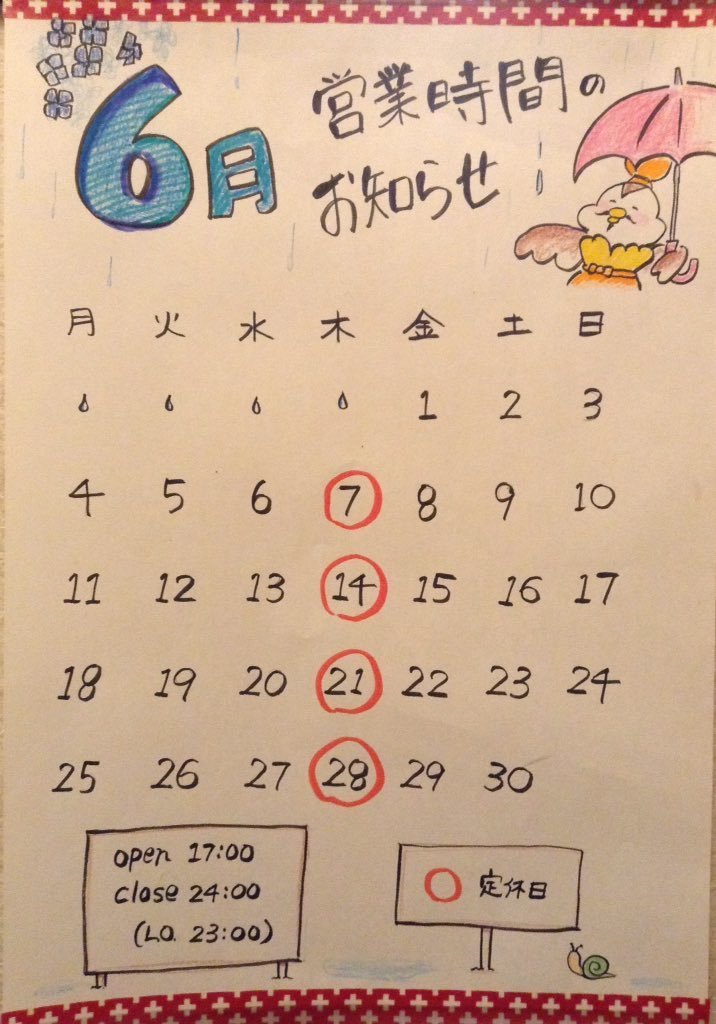 6月
営業時間の
お知らせ
月 火 水 木 金 土 日
1 2 3
4 5 6 7 8 9 10
11 12 13 14 15 16 17
18 19 20 21 22 23 24
25 26 27 28 29 30
open 17:00
close 24:00
(L.O. 23:00)
定休日